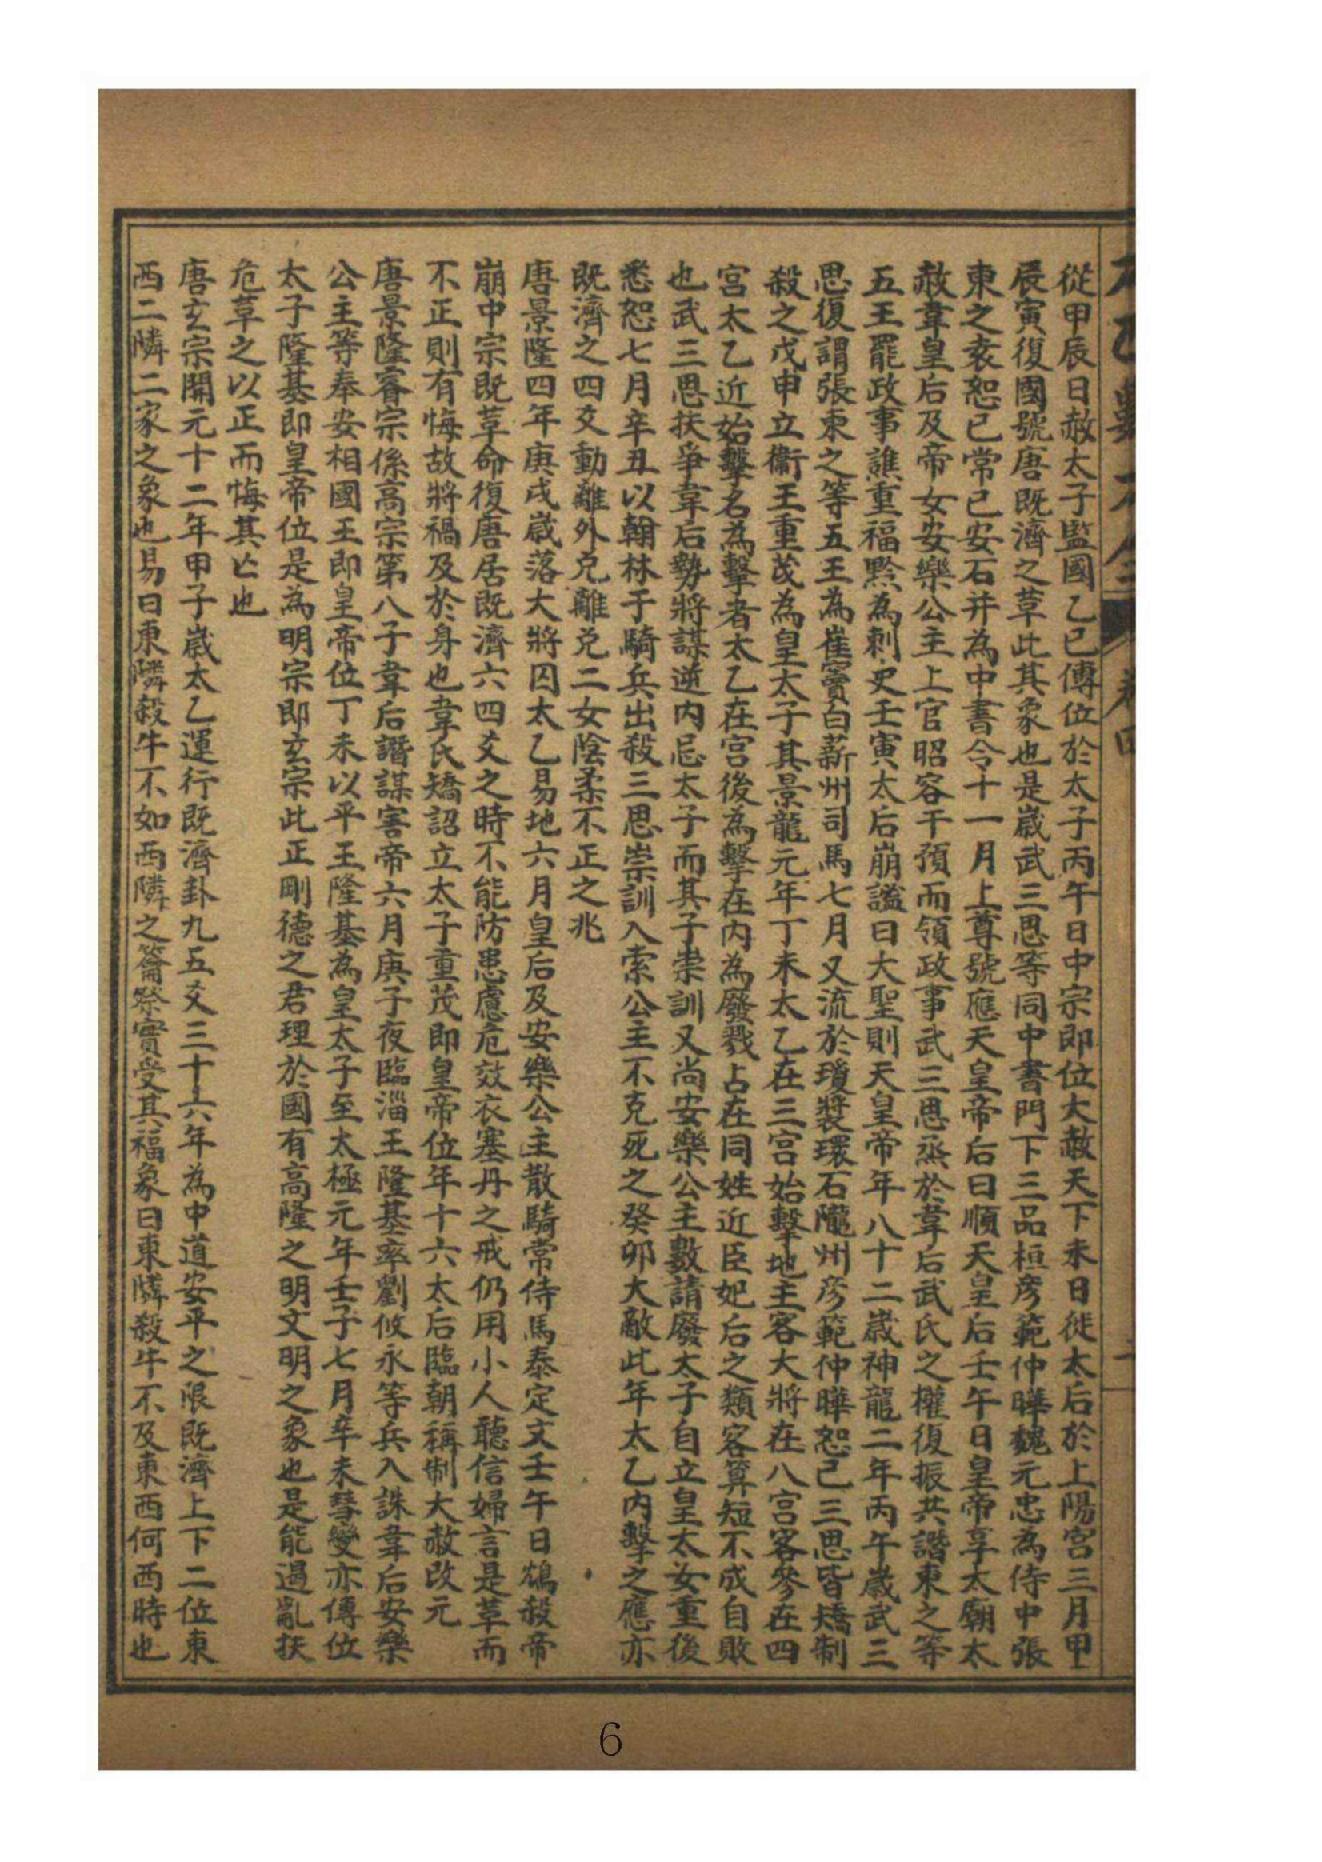 從甲辰日赦太子監國乙巳傳位於太子丙午日中宗即位大赦天下未日徙太后於上陽宮三月甲
辰寅復國號唐既濟之革此其象也是歲武三思等同中書門下三品桓彥範仲曄魏元忠為侍中張
東之袁恕已常己安石并為中書令十一月上尊號應天皇帝后曰順天皇后壬午日皇帝享太廟太
赦韋皇后及帝女安樂公主上官昭容干預而領政事武三思烝於韋后武氏之權復振共譖東之等
五王罷政事譙重福黙為刺史壬寅太后崩謚曰大聖則天皇帝年八十二歲神龍二年丙午歲武三
思復謂張東之等五王為崔竇白薪州司馬七月又流於瓊裝環石隴州彥範仲曄恕己三思皆矯制
殺之戊申立衞王重茂為皇太子其景龍元年丁未太乙在三宮始擊地主客大將在八宮客參在四
宮太乙近始擊名為擊者太乙在宮後為擊在內為廢戮占在同姓近臣妃后之類客算短不成自敗
也武三思扶爭韋后勢將謀逆內忌太子而其子崇訓又尚安樂公主數請廢太子自立皇太女重後
悉恕七月辛丑以翰林于騎兵出殺三思崇訓入索公主不克死之癸卯大赦此年太乙內擊之應亦
既濟之四爻動離外兌離兑二女陰柔不正之兆
唐景隆四年庚戌歲落大將囚太乙易地六月皇后及安樂公主散騎常侍馬泰定文壬午日鴆殺帝
崩中宗既革命復唐居既濟六四爻之時不能防患慮危效衣塞丹之戒仍用小人聽信婦言是革而
不正則有悔故將禍及於身也韋氏矯詔立太子重茂即皇帝位年十六太后臨朝稱制大赦改元
唐景隆睿宗係高宗第八子韋后譖謀害帝六月庚子夜臨淄王隆基率劉攸永等兵入誅韋后安樂
公主等奉安相國王即皇帝位丁未以平王隆基為皇太子至太極元年壬子七月辛未彗變亦傳位
太子隆基即皇帝位是為明宗即玄宗此正剛德之君理於國有高隆之明文明之象也是能過亂扶
危革之以正而悔其亡也
唐玄宗開元十二年甲子歲太乙運行既濟卦九五爻三十六年為中道安平之限既濟上下二位東
西二隣二家之象也易曰東隣殺牛不如西隣之籥祭實受其福象曰東隣殺牛不及東西何西時也
卷四
6